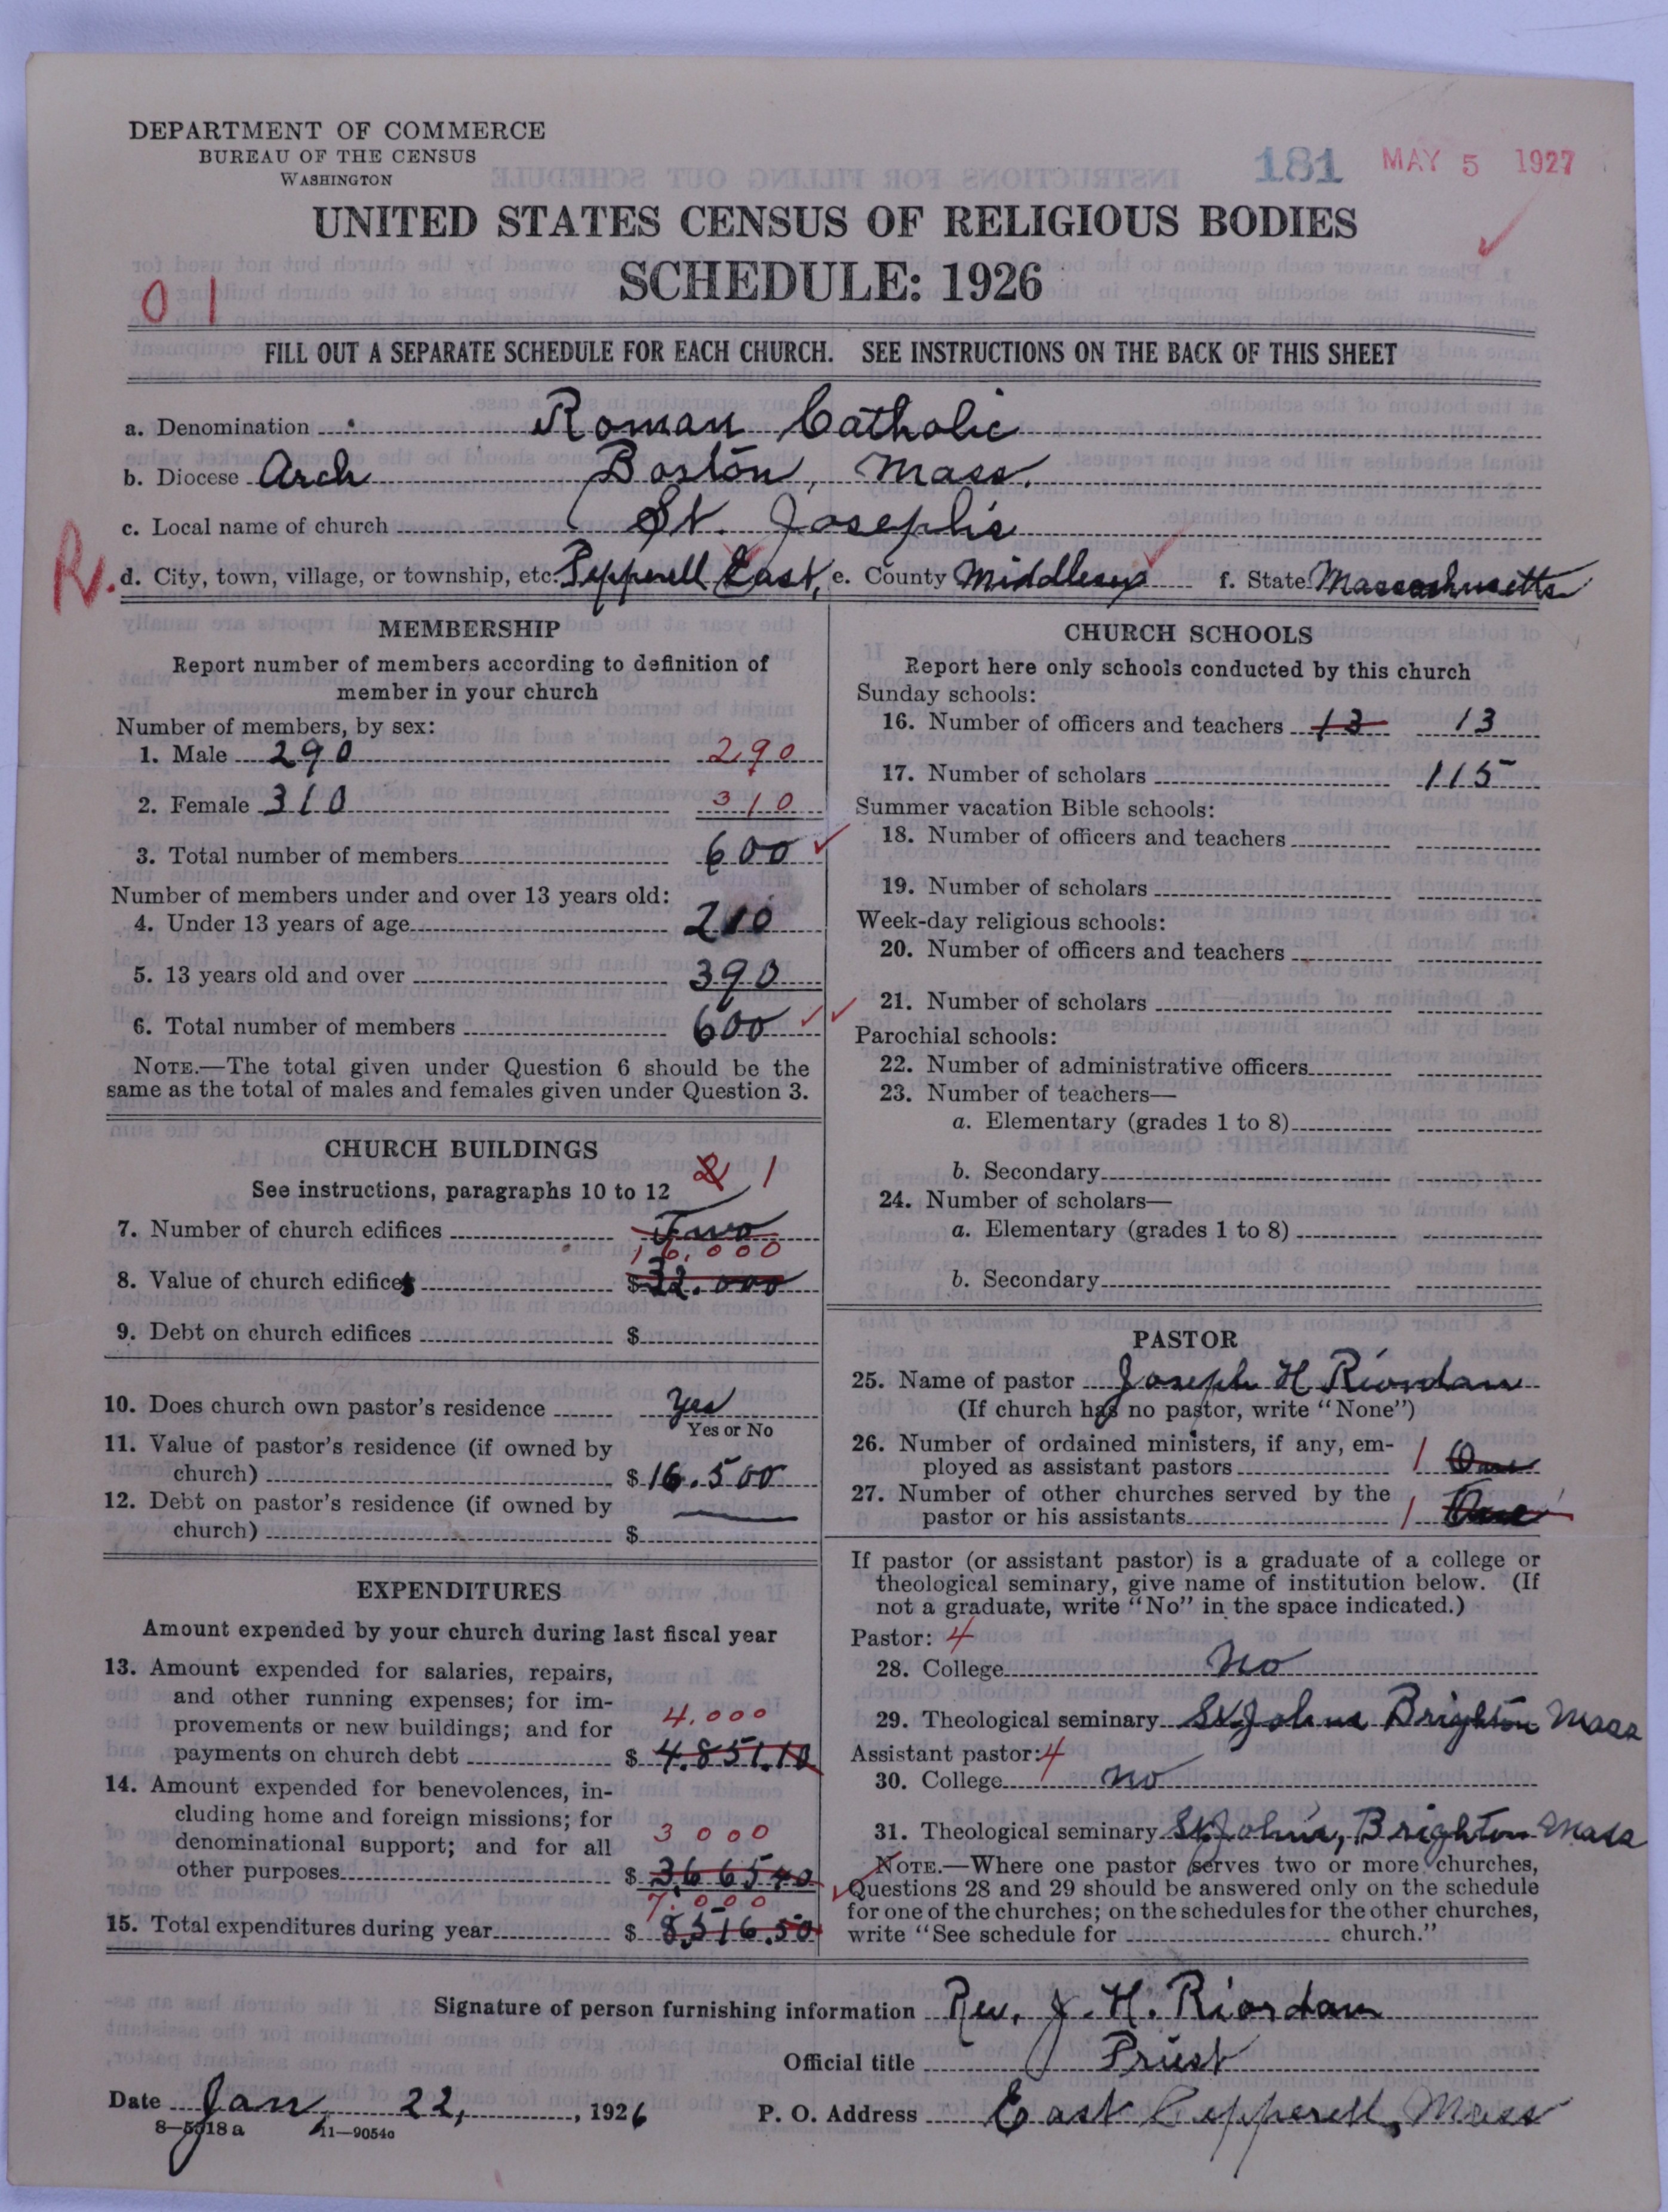 DEPARTMENT OF COMMERCE
BUREAU OF THE CENSUS
WASHINGTON
181 MAY 5 1927
UNITED STATES CENSUS OF RELIGIOUS BODIES
SCHEDULE: 1926
01
FILL OUT A SEPARATE SCHEDULE FOR EACH CHURCH. SEE INSTRUCTIONS ON THE BACK OF THIS SHEET
a. Denomination Roman Catholic
b. Diocese Arch Boston, Mass.
c. Local name of church St. Joseph's
R. d. City, town, village, or township, etc. Pepperell East, e. County Middlesex f. State Massachusetts
MEMBERSHIP
Report number of members according to definition of
member in your church
Number of members, by sex:
1. Male 290 290
2. Female 310 310
3. Total number of members 600
Number of members under and over 13 years old:
4. Under 13 years of age 210
5. 13 years old and over 390
6. Total number of members 600
NOTE.—The total given under Question 6 should be the
same as the total of males and females given under Question 3.
CHURCH BUILDINGS
2 1
See instructions, paragraphs 10 to 12
7. Number of church edifices Two
16,000
8. Value of church edifices $32.000
9. Debt on church edifices $
10. Does church own pastor's residence Yes
Yes or No
11. Value of pastor's residence (if owned by
church) $16.500
12. Debt on pastor's residence (if owned by
church) $
EXPENDITURES
Amount expended by your church during last fiscal year
13. Amount expended for salaries, repairs,
and other running expenses; for im-
provements or new buildings; and for 4,000
payments on church debt $4.851.10
14. Amount expended for benevolences, in-
cluding home and foreign missions; for
denominational support; and for all 3000
other purposes $3665 40
7,000
15. Total expenditures during year $8,516.50
CHURCH SCHOOLS
Report here only schools conducted by this church
Sunday schools:
16. Number of officers and teachers 13 13
17. Number of scholars 115
Summer vacation Bible schools:
18. Number of officers and teachers
19. Number of scholars
Week-day religious schools:
20. Number of officers and teachers
21. Number of scholars
Parochial schools:
22. Number of administrative officers
23. Number of teachers—
a. Elementary (grades 1 to 8)
b. Secondary
24. Number of scholars—
a. Elementary (grades 1 to 8)
b. Secondary
PASTOR
25. Name of pastor Joseph H Riordan
(If church has no pastor, write "None")
26. Number of ordained ministers, if any, em-
ployed as assistant pastors 1 One
27. Number of other churches served by the
pastor or his assistants 1 One
If pastor (or assistant pastor) is a graduate of a college or
theological seminary, give name of institution below. (If
not a graduate, write "No" in the space indicated.)
Pastor: 4
28. College No
29. Theological seminary St. Johns Brighton Mass
Assistant pastor: 4
30. College No
31. Theological seminary St John's, Brighton Mass
NOTE.—Where one pastor serves two or more churches,
Questions 28 and 29 should be answered only on the schedule
for one of the churches; on the schedules for the other churches,
write "See schedule for church."
Signature of person furnishing information Rev. J. H. Riordan
Official title Priest
Date Jan, 22, , 1926 P. O. Address East Pepperell, Mass
8—5918 a 11—9054a